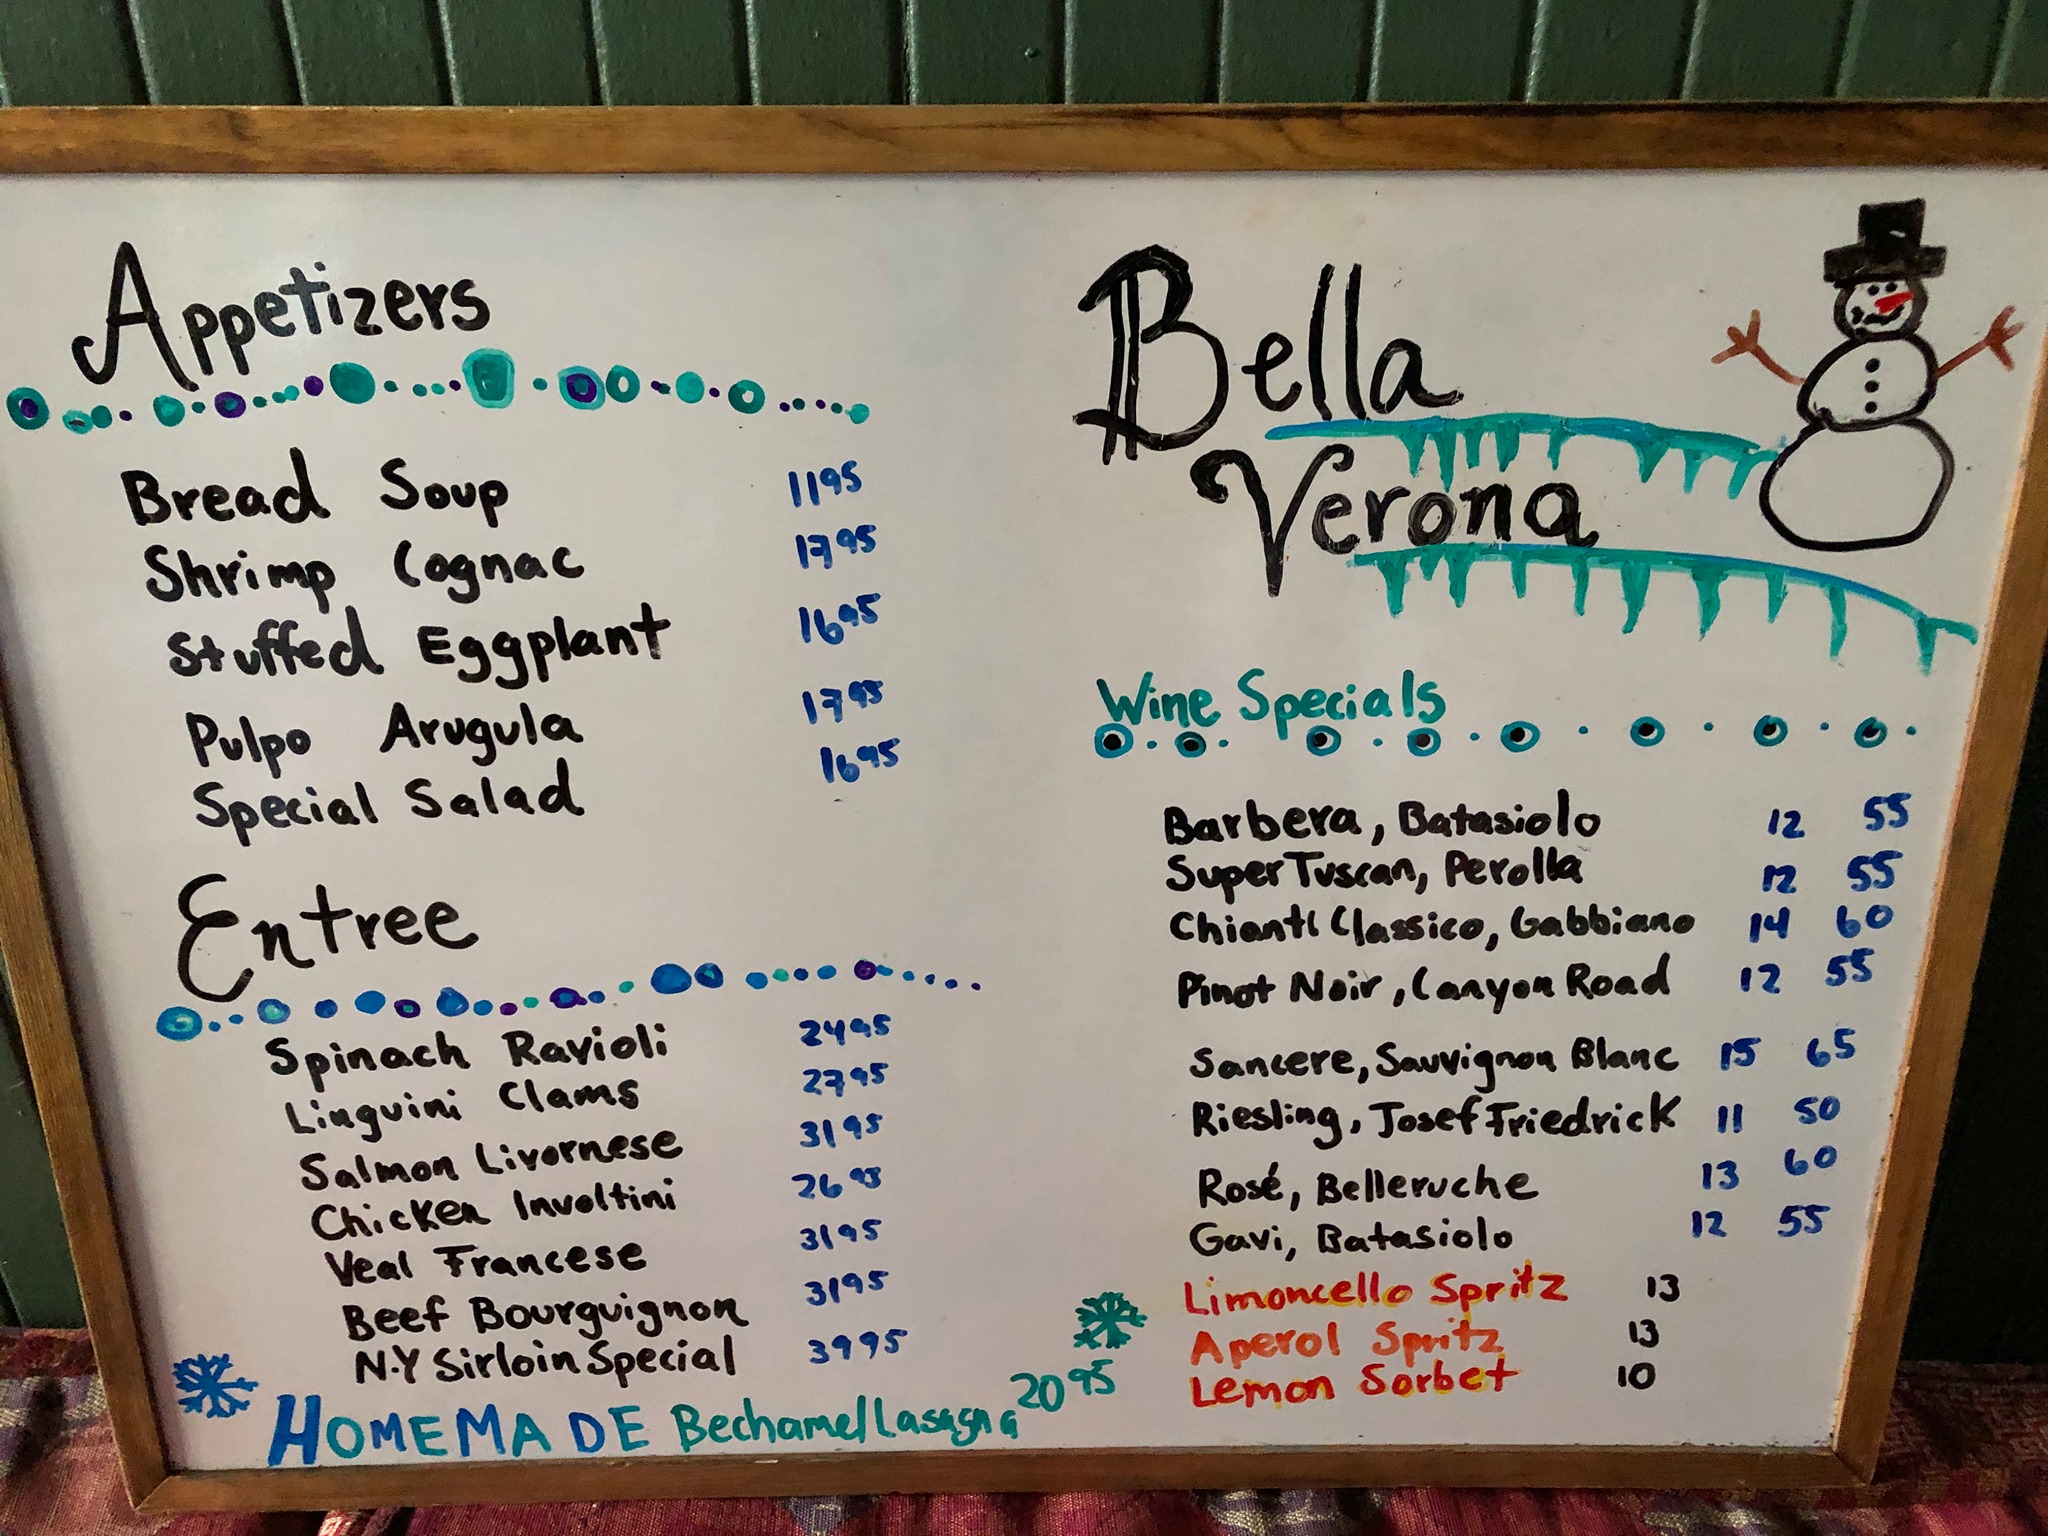 Appetizers
Bread Soup 11 95
Shrimp Cognac 17 95
Stuffed Eggplant 16 95
Pulpo Arugula 17 95
Special Salad 16 95
Entree
Spinach Ravioli 24 95
Linguini Clams 27 95
Salmon Livornese 31 95
Chicken Involtini 26 95
Veal Francese 31 95
Beef Bourguignon 31 95
N.Y Sirloin Special 39 95
HOMEMADE Bechamel Lasagna 20 95
Bella
Verona
Wine Specials
Barbera, Batasiolo 12 55
Super Tuscan, Perolla 12 55
Chianti Classico, Gabbiano 14 60
Pinot Noir, Canyon Road 12 55
Sancere, Sauvignon Blanc 15 65
Riesling, Josef Friedrick 11 50
Rosé, Belleruche 13 60
Gavi, Batasiolo 12 55
Limoncello Spritz 13
Aperol Spritz 13
Lemon Sorbet 10